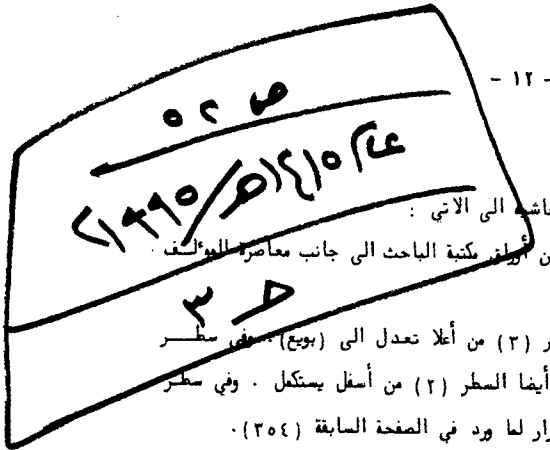 - ١٢ -
ص ٢٥
عام ١٤١٥هـ/١٩٩٥م
الى الاتي :
مكتبة الباحث الى جانب معاصرة المؤلف
ط ٣
(٣) من أعلا تعدل الى (بويع). وفي سطر
أيضا السطر (٢) من أسفل يستكمل . وفي سطر
لما ورد في الصفحة السابقة (٣٥٤).